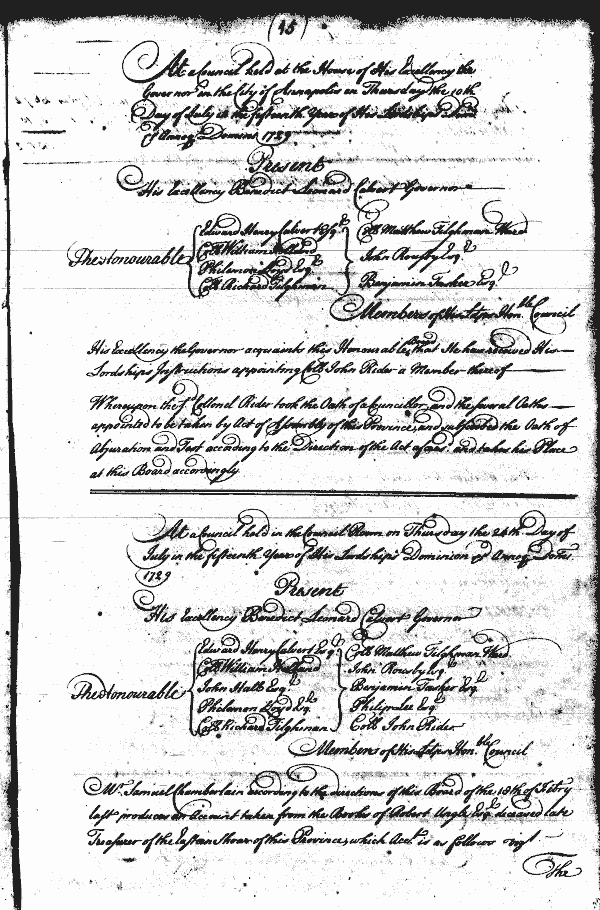 (15)
At a Council held at the House of His Excellency the
Governor in the City of Annapolis on Thursday the 10th
Day of July in the fifteenth Year of His Lordships
Annoq Domini 1729
Present
His Excellency Benedict Leonard Calvert Governor
The Honourable
Edward Henry Calvert Esqr
Collo William Holland
Philemon Lloyd Esqr
Collo Richard Tilghman
Collo Matthew Tilghman Ward
John Rousby Esqr
Benjamin Tasker Esqr
Members of His Ldps Honble Council
His Excellency the Governor acquaints this Honourable Board that He has received His
Lordships Instructions appointing Collo John Rider a Member thereof
Whereupon the sd Collonel Rider took the Oath of a Councillor, and the several Oaths
appointed to be taken by Act of Assembly of this Province, and subscribed the Oath of
Abjuration and Test according to the Direction of the Act afd. and takes his Place
at this Board accordingly
At a Council held in the Council Room on Thursday the 24th Day of
July in the fifteenth Year of His Lordship's Dominion Annoq Dom.
1729
Present
His Excellency Benedict Leonard Calvert Governor
The Honourable
Edward Henry Calvert Esqr
Collo William Holland
John Hall Esqr
Philemon Lloyd Esqr
Collo Richard Tilghman
Collo Matthew Tilghman Ward
John Rousby Esqr
Benjamin Tasker Esqr
Philip Lee Esqr
Collo John Rider
Members of His Ldps Honble Council
Mr. Samuel Chamberlain according to the directions of this Board of the 18th of
last produces an Account taken from the Books of Robert Ungle Esqr deceased late
Treasurer of the Eastern Shoar of this Province, which Acct. is as follows vizt
The